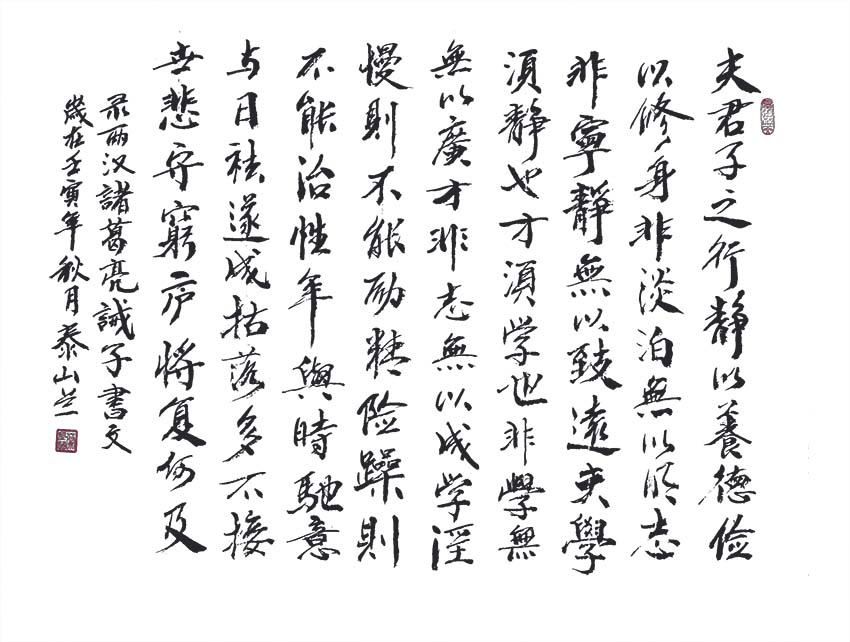 夫君子之行靜以養德儉
以修身非淡泊無以明志
非寧靜無以致遠夫學
須靜也才須学也非學無
無以廣才非志無以成学淫
慢則不能励精险躁則
不能治性年與時馳意
与日祛遂成枯落多不接
世悲守窮庐将复何及
录两汉諸葛亮誡子書文
歲在壬寅年秋月泰山兰